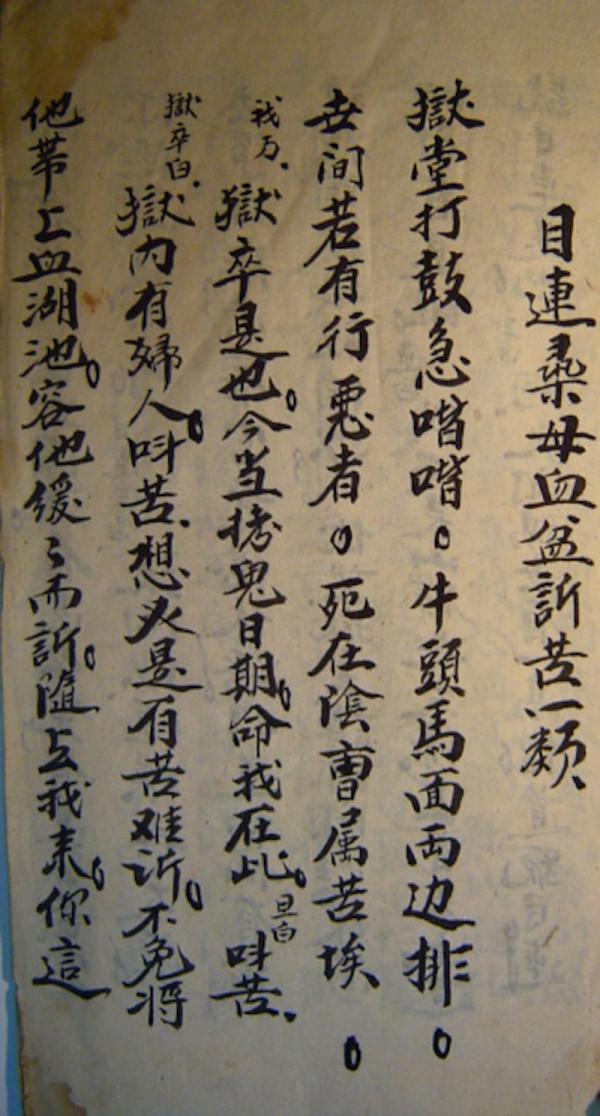 目連尋母血盆訴苦一類
獄堂打鼓急喈喈。牛頭馬面兩边排。
世间若有行惡者。死在陰曹属苦埃。
我乃. 獄卒是也。今当拷鬼日期。命我在此。旦白 叫苦.
獄卒白. 獄内有婦人。叫苦.想必是有苦难訴。不免将
他帶上血湖池。容他緩〻而訴。隨上我来。你這